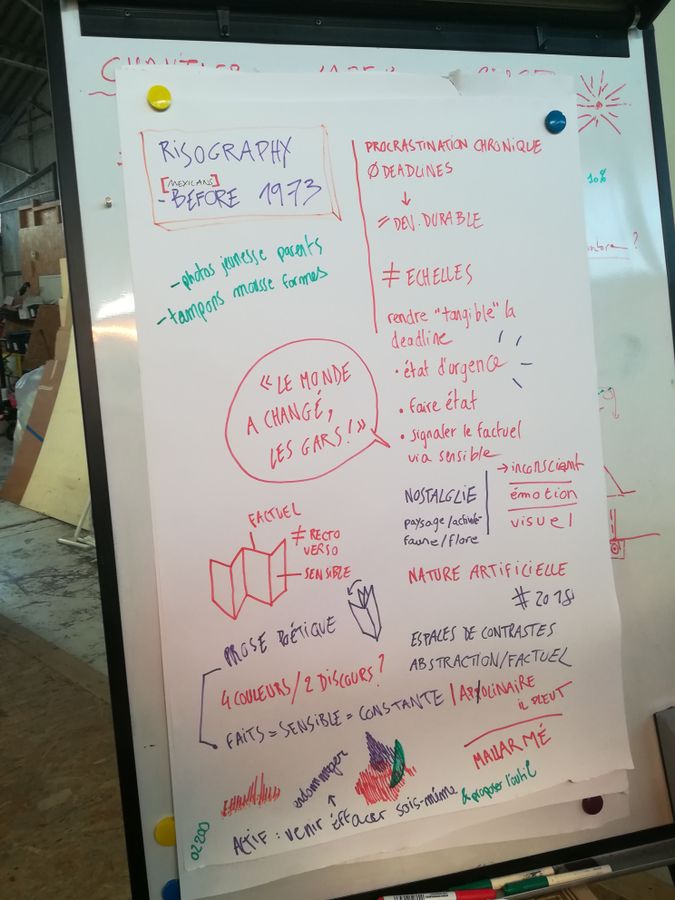 RISOGRAPHY
[MEXICANS]
- BEFORE 1973
- photos jeunesse parents
- tampons mousse formes
PROCRASTINATION CHRONIQUE
Ø DEADLINES
↓
≠ DEV. DURABLE
≠ ECHELLES
rendre "tangible" la
deadline
• état d'urgence
• faire état
• signaler le factuel
via sensible
« LE MONDE
A CHANGÉ,
LES GARS ! »
NOSTALGIE
paysage/activité
faune/flore
→ inconscient
émotion
visuel
FACTUEL
≠ RECTO
VERSO
SENSIBLE
NATURE ARTIFICIELLE
PROSE POÉTIQUE
ESPACES DE CONTRASTES
ABSTRACTION/FACTUEL
4 COULEURS / 2 DISCOURS ?
FAITS = SENSIBLE = CONSTANTE
APOLLINAIRE
IL PLEUT
MALLARMÉ
endommager
↑
ACTIF : venir éffacer sois-même
& proposer l'outil
10%
?